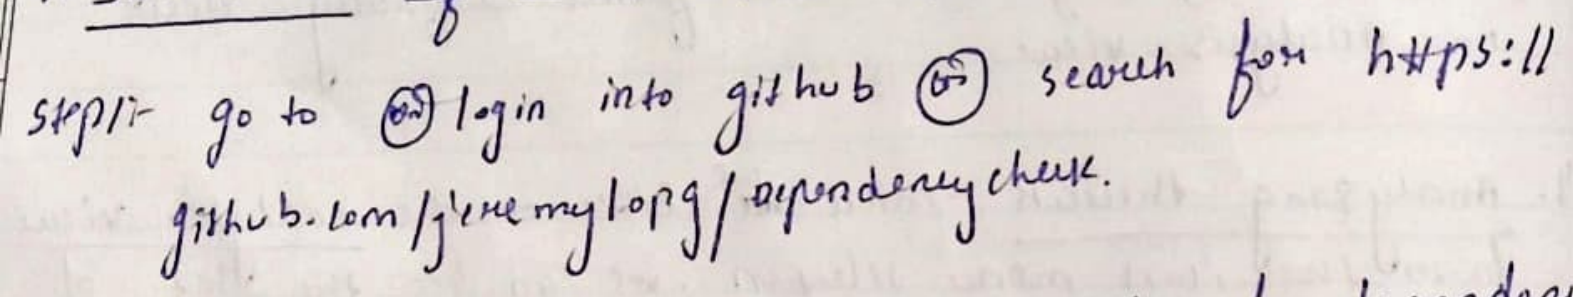 step1:- go to (or) login into github (or) search for https://
github.com/jeremylopg/dependencycheck.